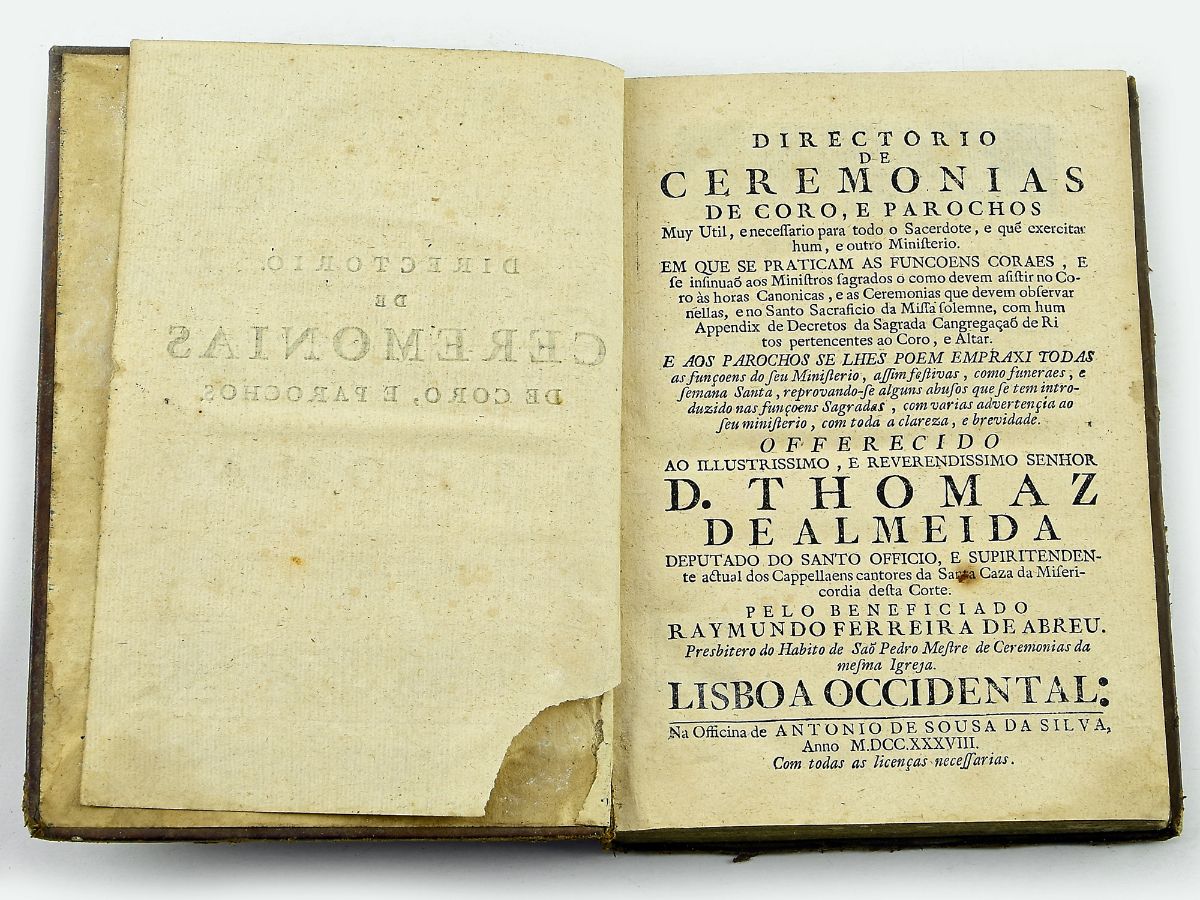 DIRECTORIO.
DE
CEREMONIAS
DE CORO, E PAROCHOS.
DIRECTORIO
DE
CEREMONIAS
DE CORO, E PAROCHOS
Muy Util, e neceſſario para todo o Sacerdote, e quē exercitar
hum, e outro Miniſterio.
EM QUE SE PRATICAM AS FUNCOENS CORAES, E
ſe inſinuaõ aos Miniſtros ſagrados o como devem aſiſtir no Co-
ro às horas Canonicas, e as Ceremonias que devem obſervar
nellas, e no Santo Sacraficio da Miſſa ſolemne, com hum
Appendix de Decretos da Sagrada Cangregaçaõ de Ri
tos pertencentes ao Coro, e Altar.
E AOS PAROCHOS SE LHES POEM EMPRAXI TODAS
as funçoens do ſeu Miniſterio, aſſim feſtivas, como funeraes, e
ſemana Santa, reprovando-ſe alguns abuſos que ſe tem intro-
duzido nas funçoens Sagradas, com varias advertençia ao
ſeu miniſterio, com toda a clareza, e brevidade.
OFFERECIDO
AO ILLUSTRISSIMO, E REVERENDISSIMO SENHOR
D. THOMAZ
DE ALMEIDA
DEPUTADO DO SANTO OFFICIO, E SUPIRITENDEN-
te actual dos Cappellaens cantores da Santa Caza da Miſeri-
cordia deſta Corte.
PELO BENEFICIADO
RAYMUNDO FERREIRA DE ABREU.
Presbitero do Habito de Saõ Pedro Meſtre de Ceremonias da
meſma Igreja.
LISBOA OCCIDENTAL:
Na Officina de ANTONIO DE SOUSA DA SILVA,
Anno M.DCC.XXXVIII.
Com todas as licenças neceſſarias.